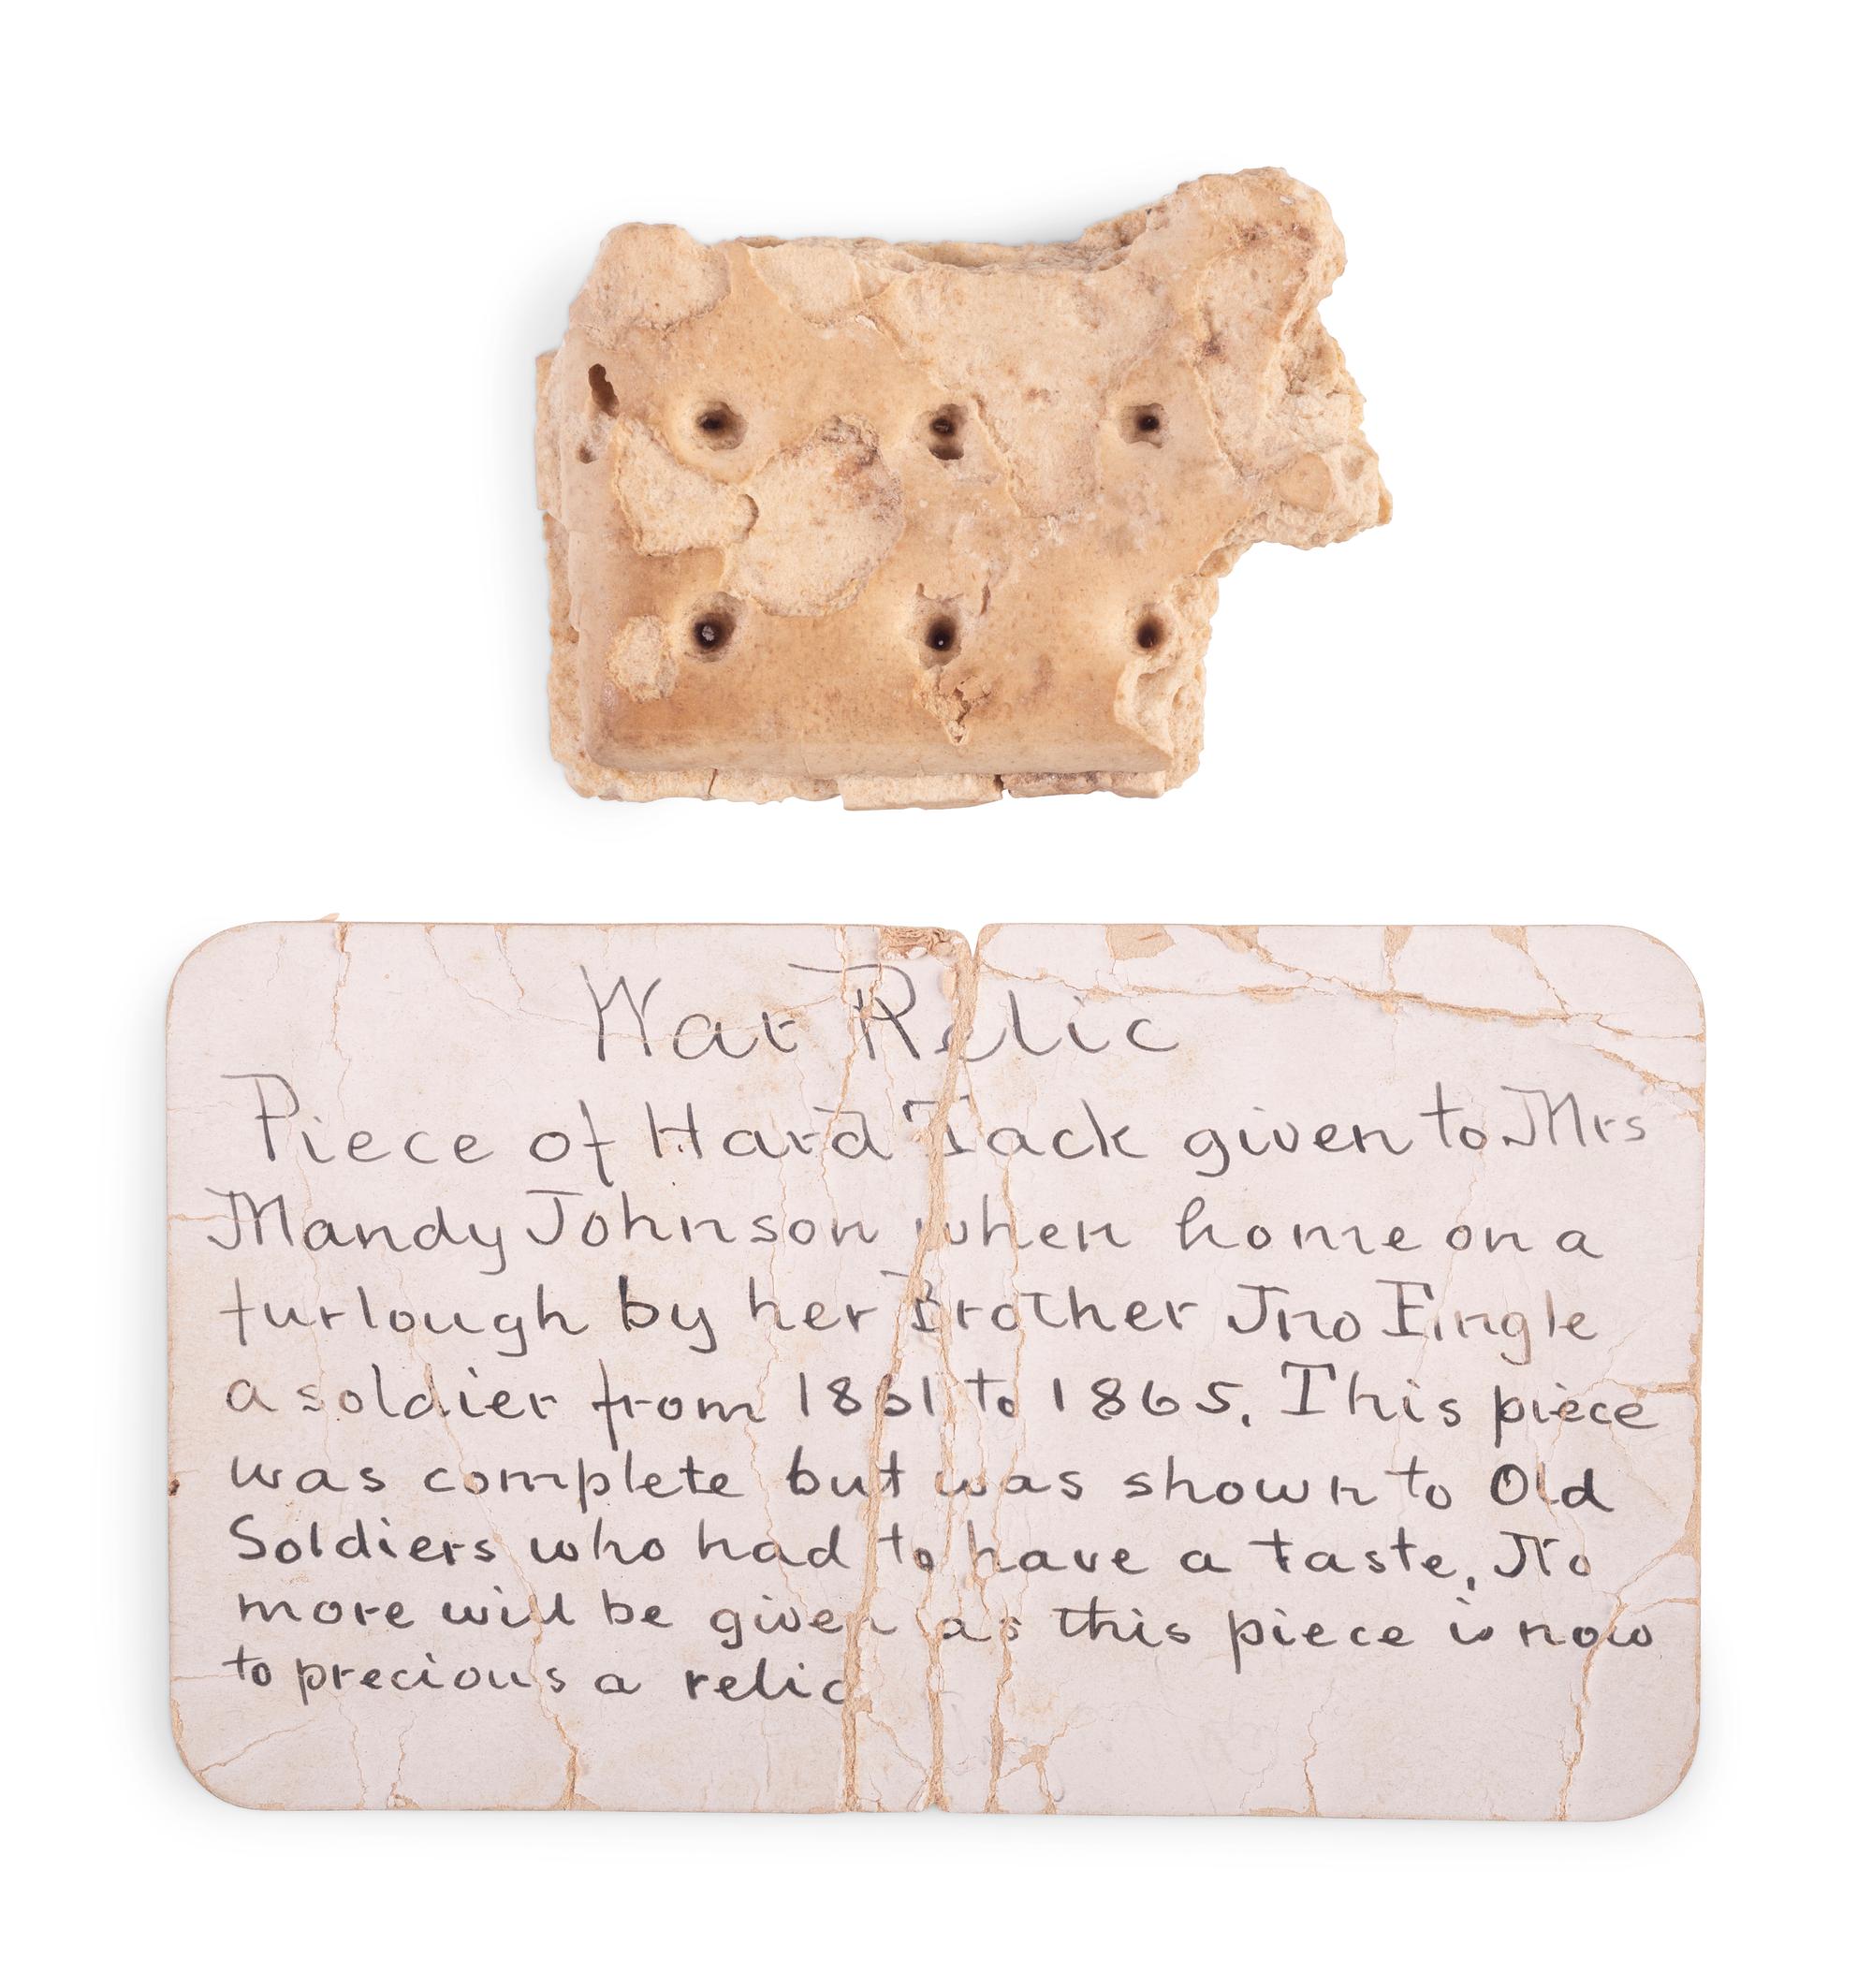 War Relic
Piece of Hard Tack given to Mrs
Mandy Johnson when home on a
furlough by her Brother Jno Eingle
a soldier from 1861 to 1865. This piece
was complete but was shown to Old
Soldiers who had to have a taste, No
more will be given as this piece is now
to precious a relic